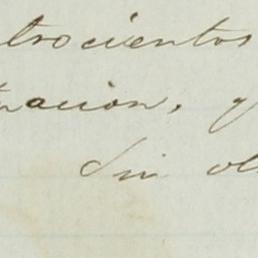 trocientos
nacion, y
Sin ob